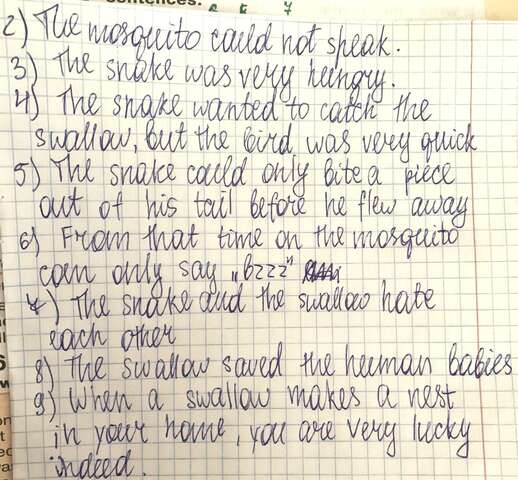 sentences.
6 5 7
2) The mosquito could not speak.
3) The snake was very hungry.
4) The snake wanted to catch the
swallow, but the bird was very quick
5) The snake could only bite a piece
out of his tail before he flew away
6) From that time on the mosquito
can only say „bzzz"
7) The snake and the swallow hate
each other
8) The swallow saved the human babies
9) When a swallow makes a nest
in your home, you are very lucky
indeed.